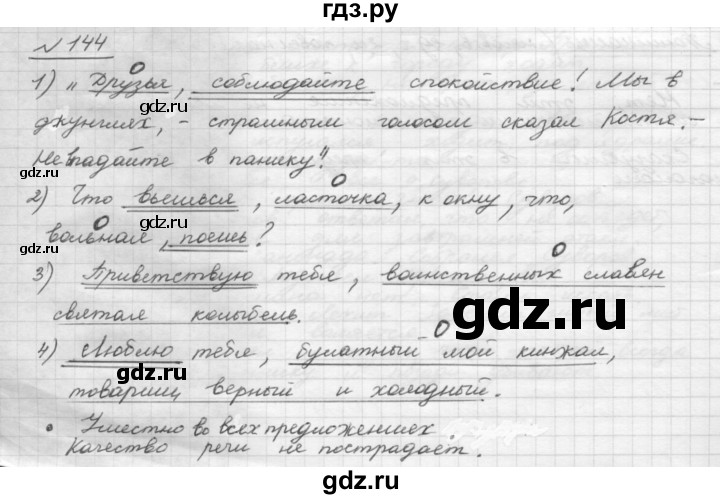 гдз.ру
№ 144
1) „Друзья, соблюдайте спокойствие! Мы в
джунглях, - страшным голосом сказал Костя. -
Не впадайте в панику!"
гдз.ру
2) Что вьешься, ласточка, к окну, что,
вольная, поешь?
гдз.ру
3) Приветствую тебя, воинственных славян
святая колыбель.
гдз.ру
4) Люблю тебя, булатный мой кинжал,
товарищ верный и холодный.
гдз.ру
• Уместно во всех предложениях.
Качество речи не пострадает.
гдз.ру
gdz.ru